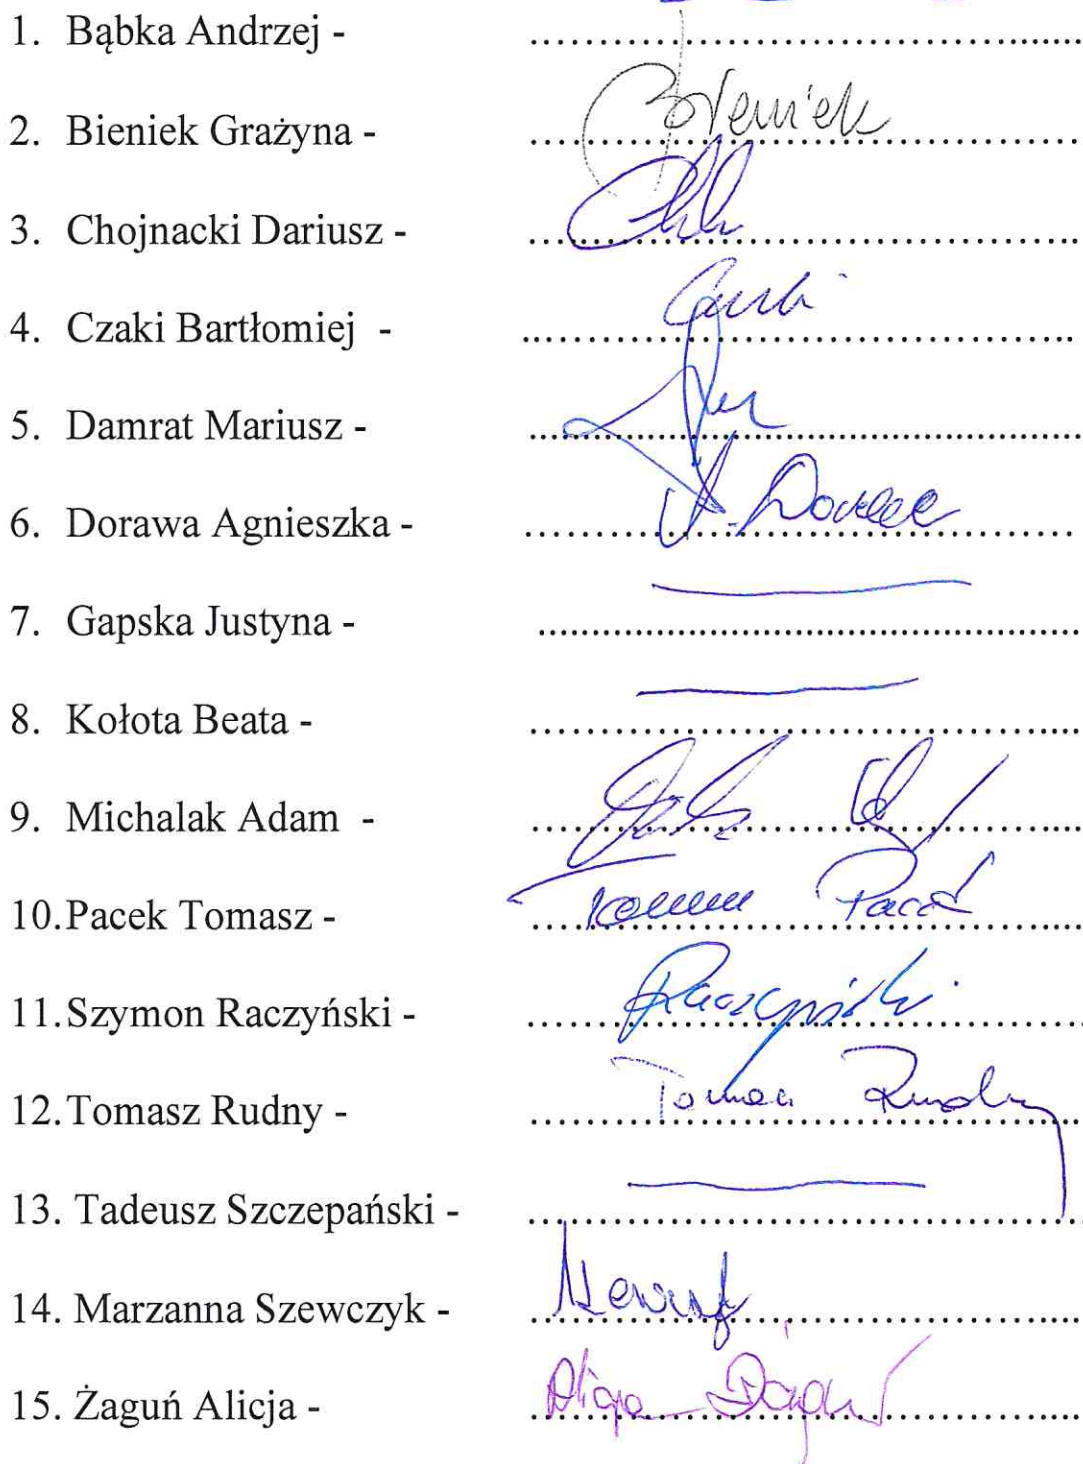 1. Bąbka Andrzej - ................................................
2. Bieniek Grażyna - ................................................ Bieniek
3. Chojnacki Dariusz - ................................................
4. Czaki Bartłomiej - ................................................
5. Damrat Mariusz - ................................................
6. Dorawa Agnieszka - ................................................ A. Dorawa
7. Gapska Justyna - ................................................
8. Kołota Beata - ................................................
9. Michalak Adam - ................................................
10. Pacek Tomasz - ................................................ Tomasz Pacek
11. Szymon Raczyński - ................................................ Raczyński
12. Tomasz Rudny - ................................................ Tomasz Rudny
13. Tadeusz Szczepański - ................................................
14. Marzanna Szewczyk - ................................................
15. Żaguń Alicja - ................................................ Alicja Żaguń